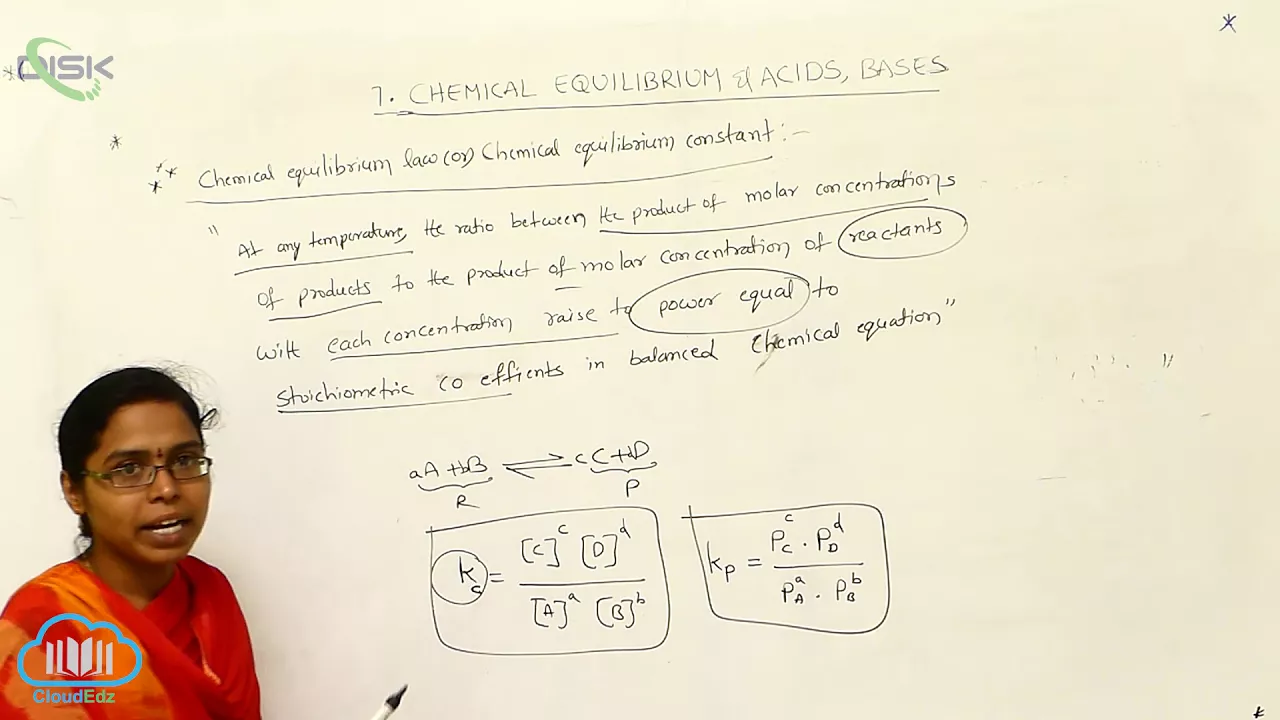 DISK
7. CHEMICAL EQUILIBRIUM & ACIDS, BASES
Chemical equilibrium law (or) Chemical equilibrium constant :-
" At any temperature, the ratio between the product of molar concentrations
of products to the product of molar concentration of reactants
with each concentration raise to power equal to
stoichiometric co effients in balanced chemical equation "
aA + bB ⇌ cC + dD
R P
Kc = [C]^c [D]^d / [A]^a [B]^b
Kp = P_C^c . P_D^d / P_A^a . P_B^b
CloudEdz